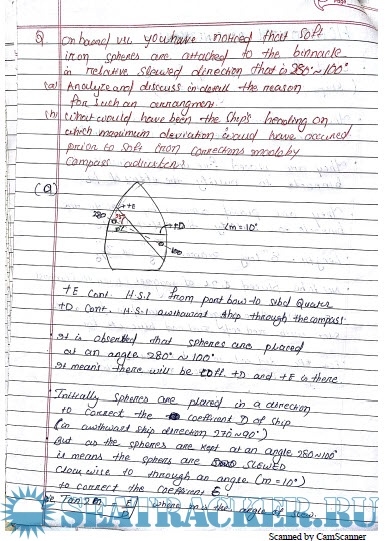 Page
Q. on board v/v you have noticed that soft
iron spheres are attached to the binnacle
in relative slewed direction that is 280° ~ 100°
(a) Analyze and discuss in detail the reason
for such an arrangment.
(b) What would have been the ship's heading on
which maximum deviation would have occured
prior to soft iron corrections made by
Compass adjusters.
(a)
+E
280
+D
∠m = 10°
100
+E Cont. H.S.I from port bow to stbd Quater
+D Cont. H.S.I athwart ship through the compass
It is observed that spheres are placed
at an angle 280° ~ 100°
It means there will be coff +D and +E is there
Initially spheres are placed in a direction
to correct the coefficent D of ship
(in athwart ship direction 270 ~ 90°)
But as the spheres are kept at an angle 280 ~ 100°
is means the sphers are SLEWED
clock wise to through an angle (m = 10°)
to correct the coefficent E.
Tan 2m = E/D where m is the angle of slew.
SEATRACKER.RU
Scanned by CamScanner